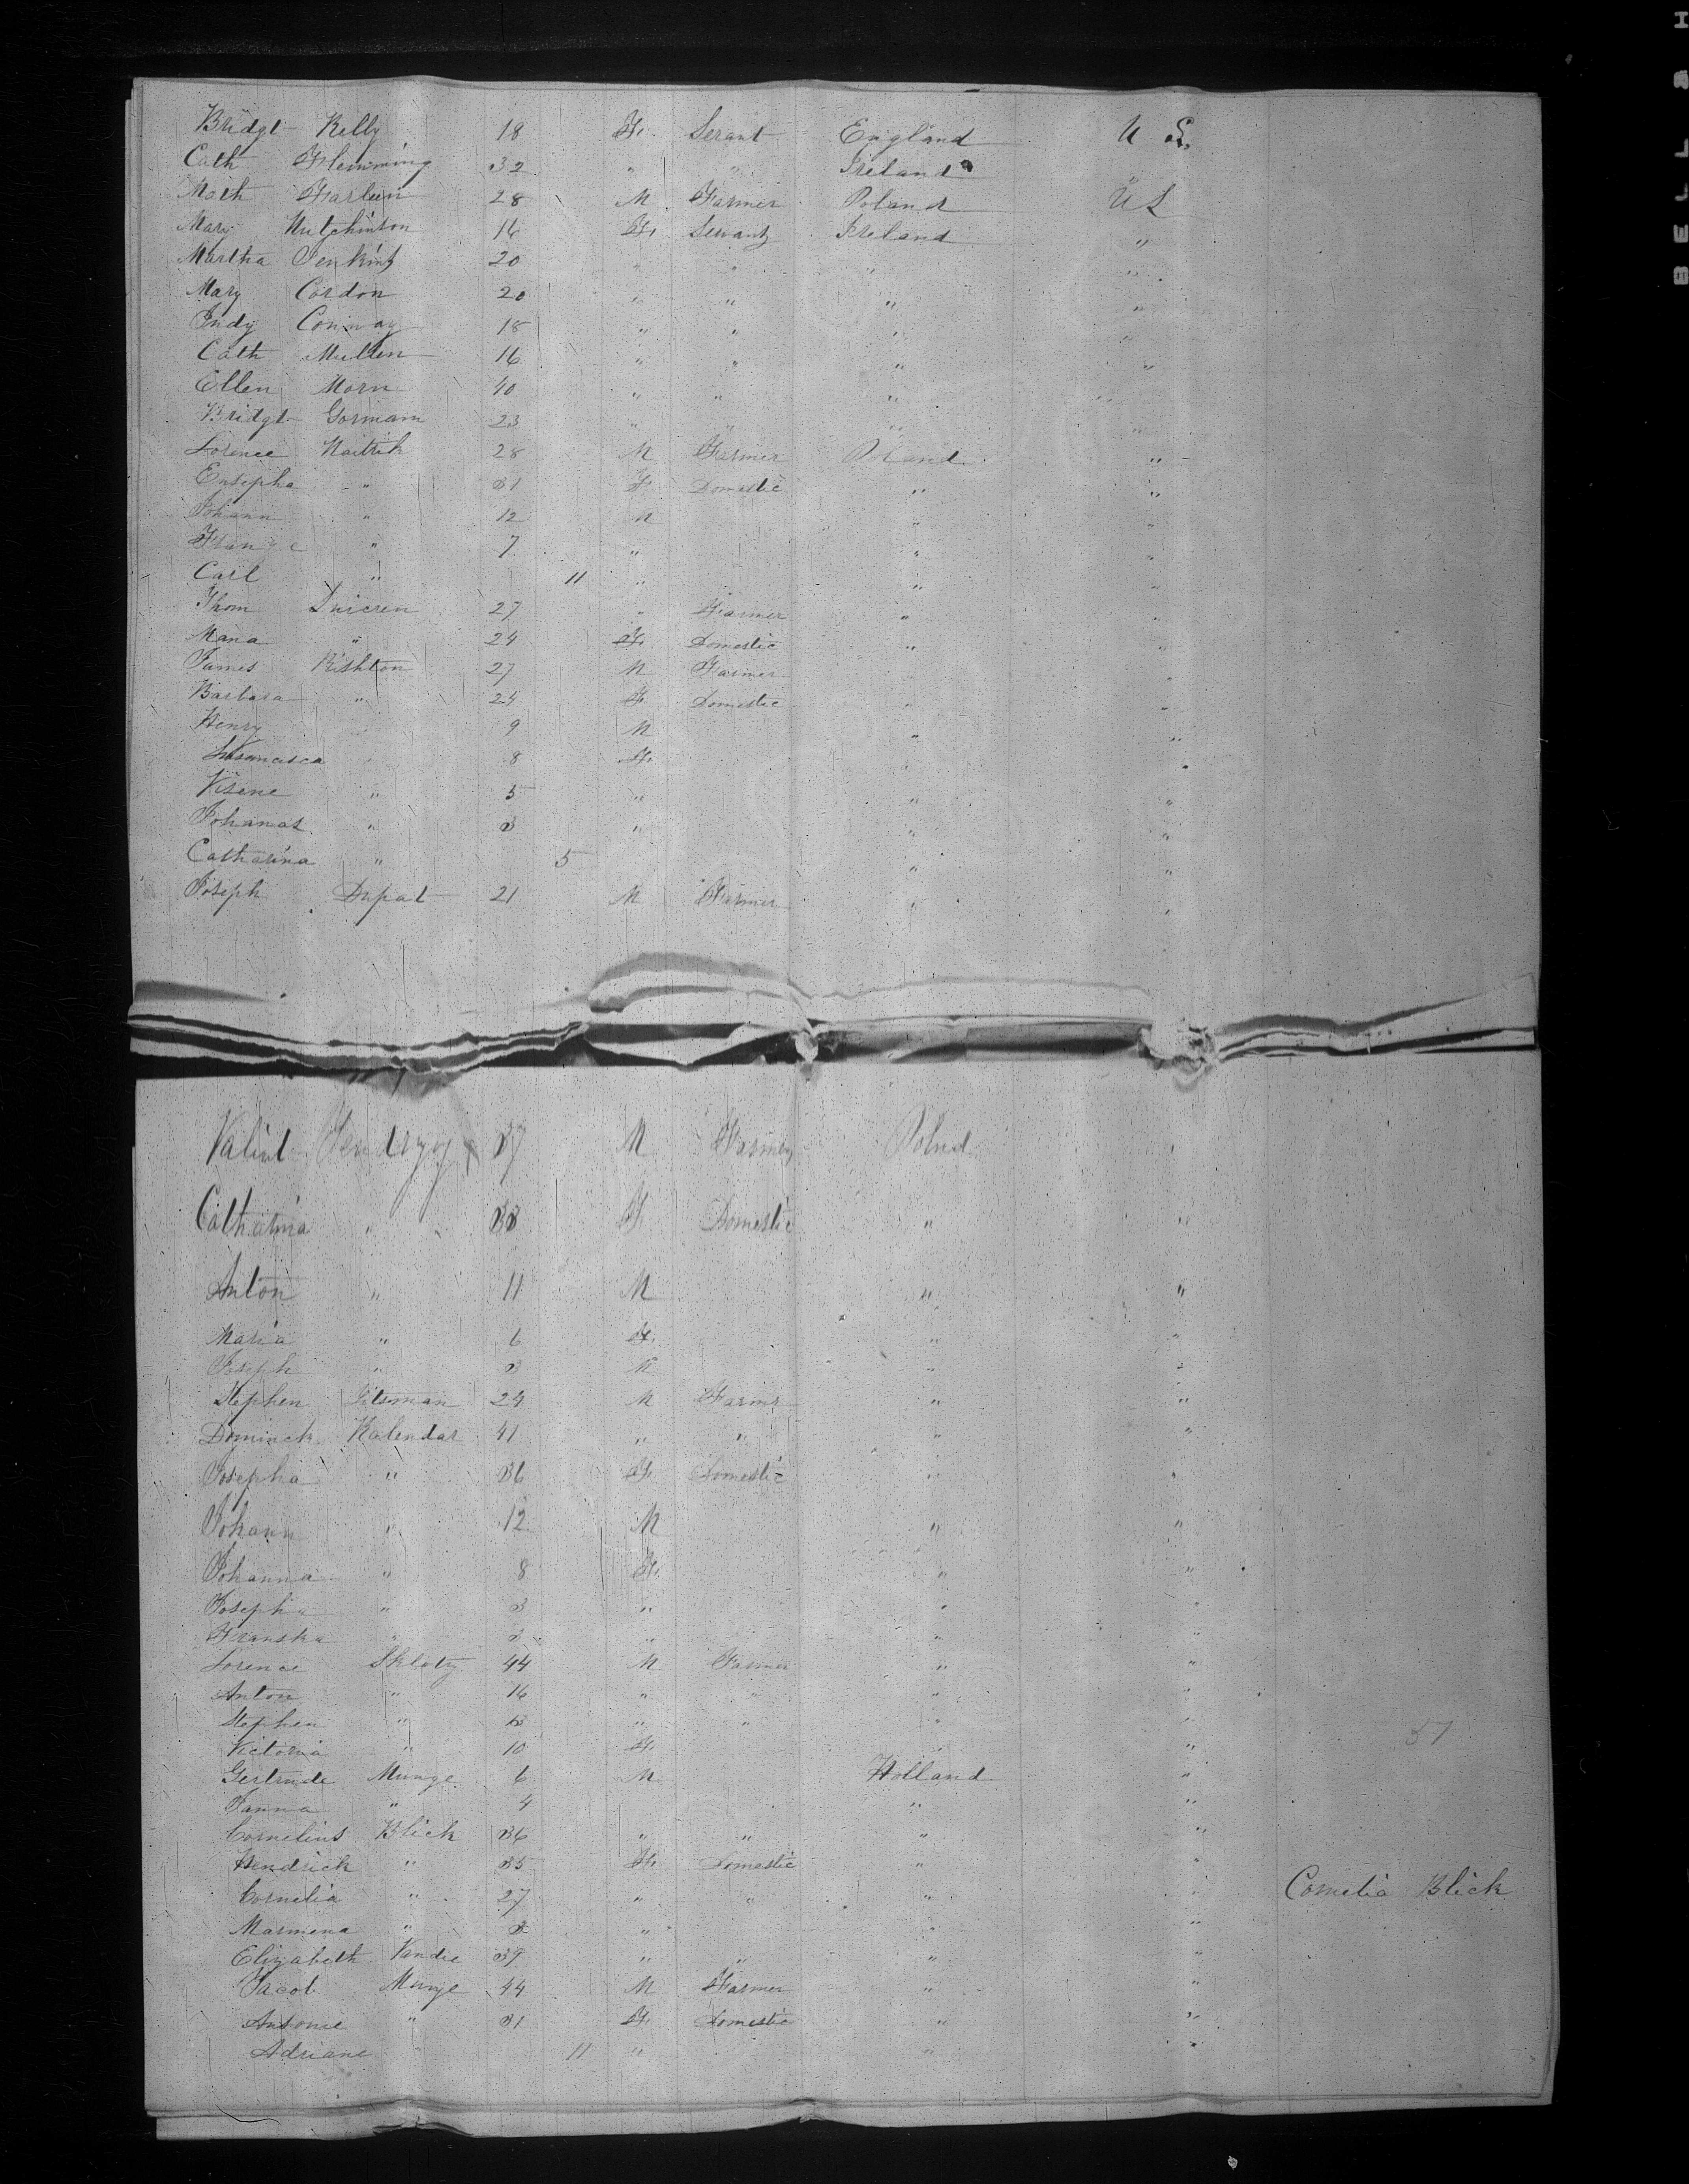 Bridgt Kelly 18 F. Serant England U S.
Cath Flemming 32 " " Ireland
Math 28 M Farmer Poland US
Mary Hutchinson 16 F. Servant Ireland "
Martha Jenkins 20 " " " "
Mary Cordon 20 " " " "
Indy Conway 18 " " " "
Cath Mullen 16 " " " "
Ellen Morn 40 " " " "
Bridgt Gormam 23 " " " "
Lorence 28 M Farmer Poland "
Eusepha " 31 F Domestic " "
Johann " 12 M " "
" 7 " " "
Carl " 11 " " "
Thom 27 " Farmer " "
Mana " 24 F. Domestic " "
James Rishton 27 M Farmer "
Barbara " 24 F Domestic " "
Henry 9 M " "
8 F. " "
Visene " 5 " " "
Johanas " 3 " " "
Catharina " 5 " "
Joseph Dupat 21 M Farmer " "
Valint 37 M Farmer Polnd "
Catharina " 33 F. Domestic " "
Anton " 11 M " "
Maria " 6 F. " "
Joseph " 3 M " "
Stephen Litsman 24 M Farmr " "
Dominck Kalendar 41 " " " "
Josepha " 36 F. Domestic " "
Johann " 12 M " "
Johanna " 8 F. " "
Josepha " 3 " " "
Franska " " " "
Lorence Sklotz 44 M Farmer " "
Anton " 16 " " " "
Stephen " 13 " " " "
Victoria " 10 F. " "
57
Gertrude Munge 6 M Holland "
Janna " 4 " "
Cornelius Blick 36 " " " "
Hendrick " 35 F. Domestic " "
Cornelia " 27 " " " " Cornelia Blick
Marmena " " " "
Elizabeth Vandie 39 " " " "
Jacob Munge 44 M Farmer " "
Antonie " 31 F. Domestic " "
Adriane 11 " " "
BELL &